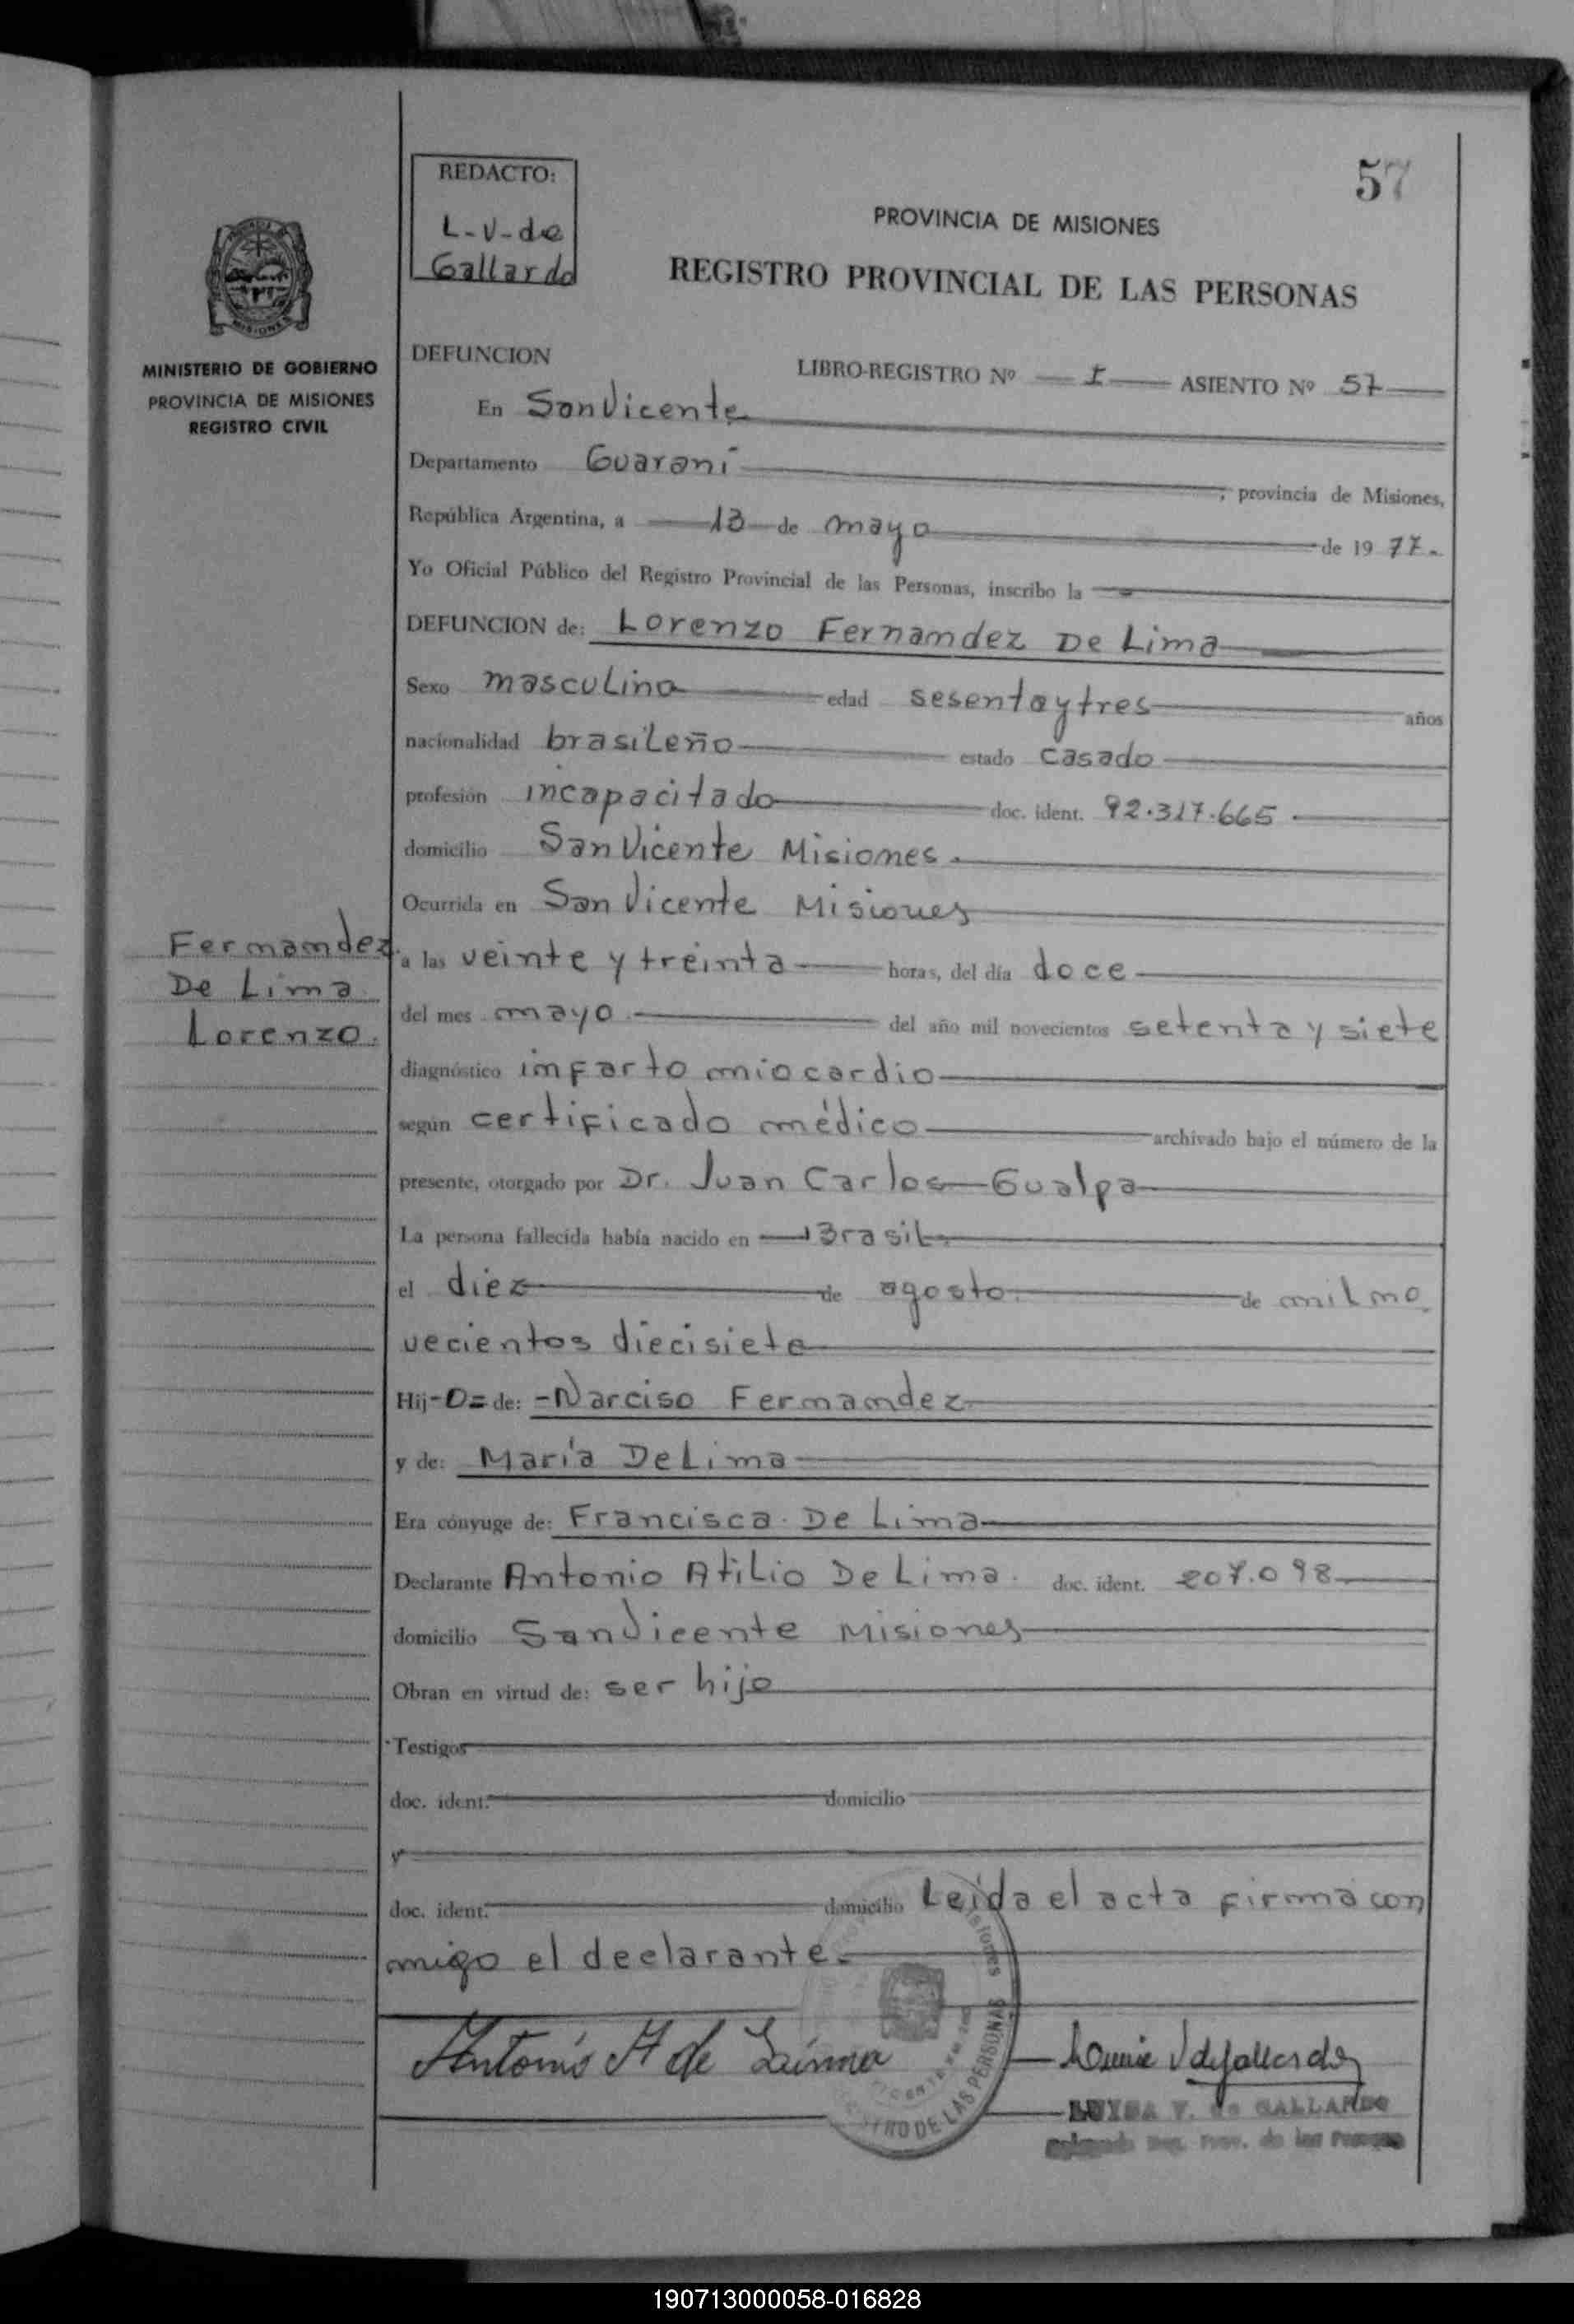 57
REDACTO:
L-V-de
Gallardo
PROVINCIA DE MISIONES
REGISTRO PROVINCIAL DE LAS PERSONAS
MISIONES
MINISTERIO DE GOBIERNO
PROVINCIA DE MISIONES
REGISTRO CIVIL
DEFUNCION LIBRO-REGISTRO Nº I ASIENTO Nº 57
En San Vicente
Departamento Guaraní , provincia de Misiones,
República Argentina, a 13 de mayo de 19 77.
Yo Oficial Público del Registro Provincial de las Personas, inscribo la
DEFUNCION de: Lorenzo Fernamdez De Lima
Sexo masculino edad sesenta y tres años
nacionalidad brasileño estado casado
profesión incapacitado doc. ident. 92.317.665
domicilio San Vicente Misiones.
Ocurrida en San Vicente Misiones
Fermamdez
De Lima
Lorenzo.
a las veinte y treinta horas, del día doce
del mes mayo del año mil novecientos setenta y siete
diagnóstico imfarto miocardio
según certificado médico archivado bajo el número de la
presente, otorgado por Dr. Juan Carlos Gualpa
La persona fallecida había nacido en Brasil.
el diez de agosto de mil no
vecientos diecisiete
Hij-o= de: -Narciso Fermamdez
y de: María De Lima
Era cónyuge de: Francisca De Lima
Declarante Antonio Atilio De Lima. doc. ident. 207.098
domicilio San Vicente Misiones
Obran en virtud de: ser hijo
Testigos
doc. ident. domicilio
y
doc. ident. domicilio Leída el acta firma con
migo el declarante.
Antonio A de Lima
LUISA V. de GALLARDO
Reg. Prov. de las Personas
REGISTRO DE LAS PERSONAS
Misiones
190713000058-016828